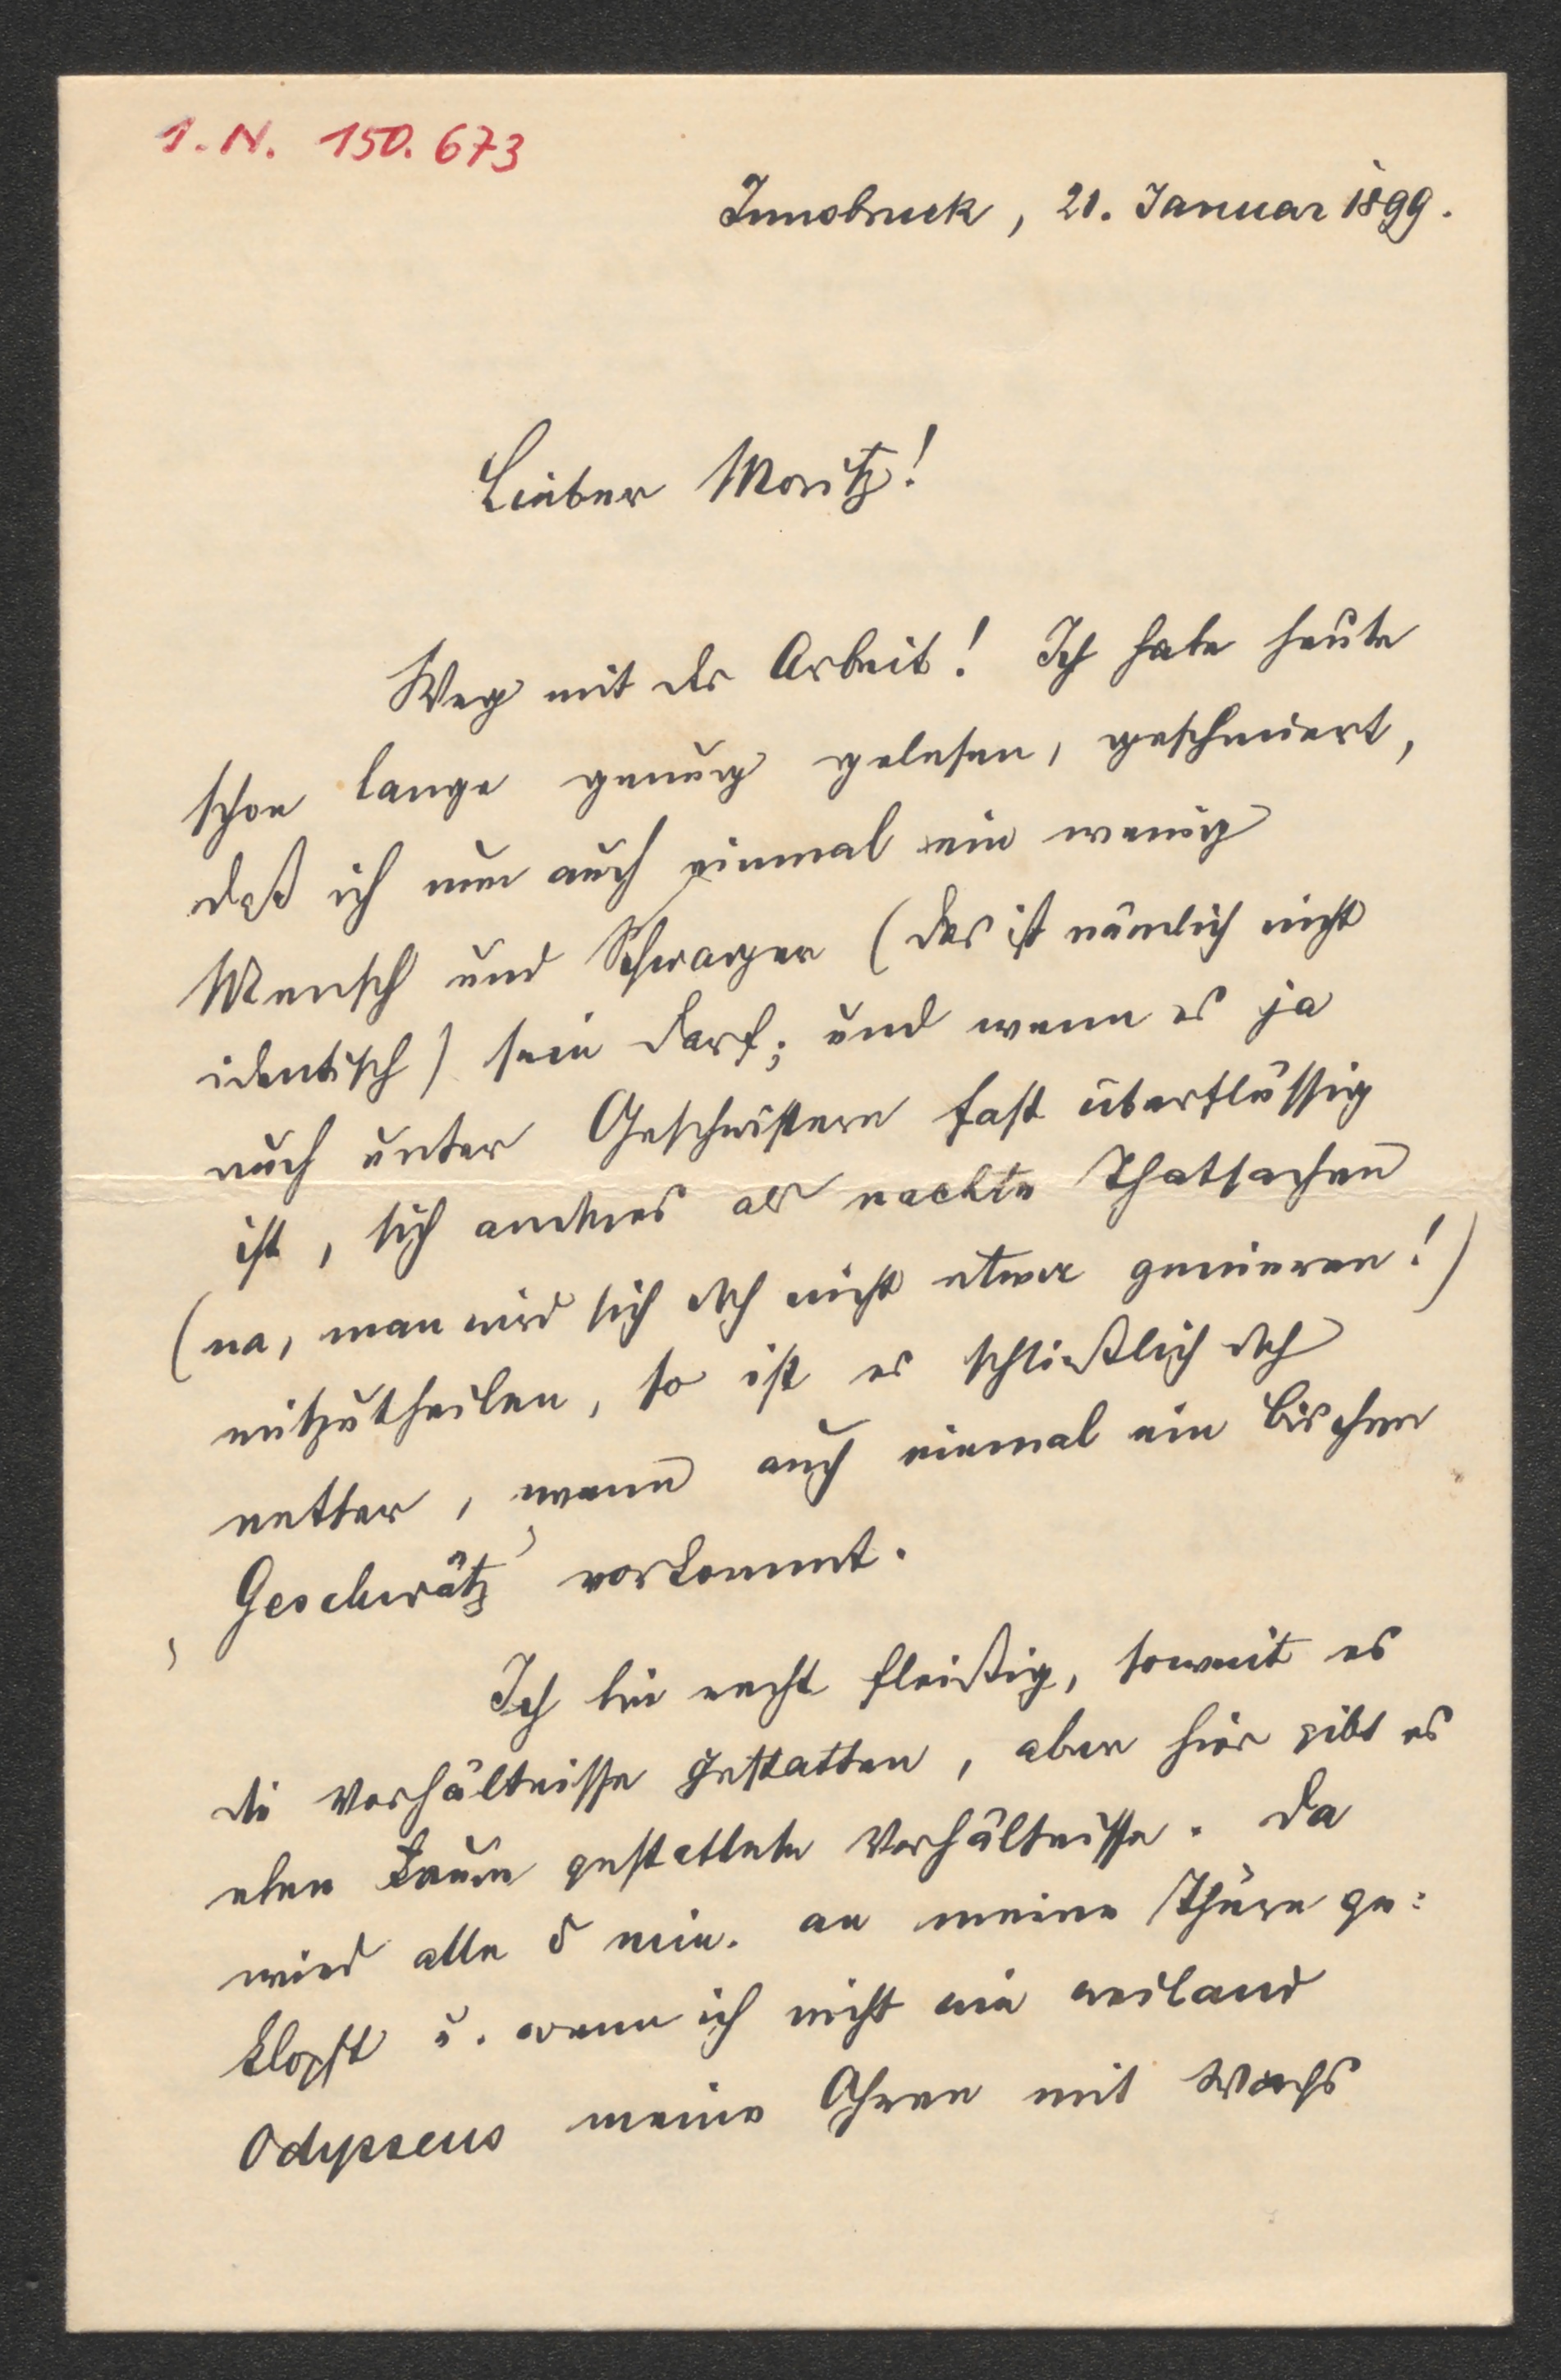 I. N. 150.673
Innsbruck, 21. Januar 1899.
Lieber Moritz!
Weg mit der Arbeit! Ich habe heute
schon lange genug gelesen, geschmiert,
daß ich nun auch einmal ein wenig
Mensch und Schwager (das ist nämlich nicht
identisch) sein darf; und wenn es ja
auch unter Geschwistern fast überflüssig
ist, sich anderes als nackte Thatsachen
(na, man wird sich doch nicht etwa genieren!)
mitzutheilen, so ist es schließlich doch
netter, wenn auch einmal ein bischen
„Geschwätz“ vorkommt.
Ich bin recht fleißig, soweit es
die Verhältnisse gestatten, aber hier gibt es
eben kaum gestattete Verhältnisse. Da
wird alle 5 min. an meine Thüre ge-
klopft u. wenn ich nicht wie weiland
Odysseus meine Ohren mit Wachs